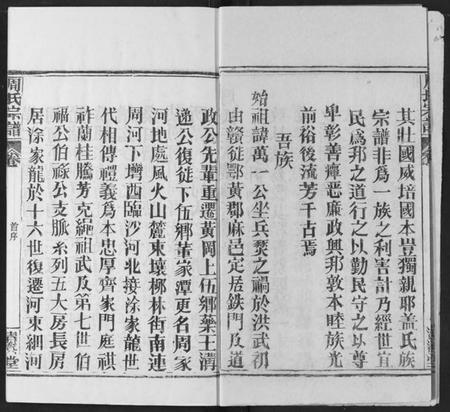 其壯國威培國本豈獨親耶蓋氏族
宗譜非為一族之利害計乃經世宜
民為邦之道行之以勤民守之以尊
卑彰善癉惡廉政興邦敦本睦族光
前裕後流芳千古焉
吾族
始祖諱萬一公坐兵燹之禍於洪武初
由贛徙鄂黃郡麻邑定居鉄門及道
政公先輩重遷黃岡上伍鄉藥王溝
遞公復徒下伍鄉董家潭更名周家
河地處風火山麓東壤柳林街南連
周河下壪西臨沙河北接涂家龍世
代相傳禮義為本忠厚齊家門庭祺
祚蘭桂騰芳克繩祖武及第七世伯
福公伯祿公支脈系列五大房長房
居涂家龍於十六世復遷河東細河
周氏宗譜
卷
首序
堂